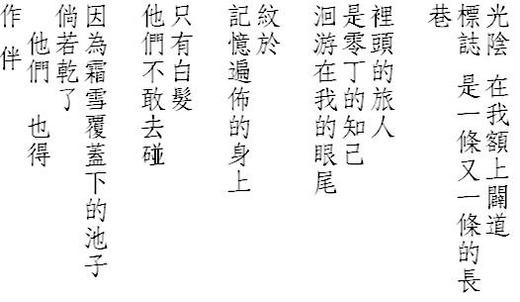 光陰 在我額上闢道
標誌 是一條又一條的長
巷
裡頭的旅人
是零丁的知己
洄游在我的眼尾
紋於
記憶遍佈的身上
只有白髮
他們不敢去碰
因為霜雪覆蓋下的池子
倘若乾了
他們 也得
作 伴